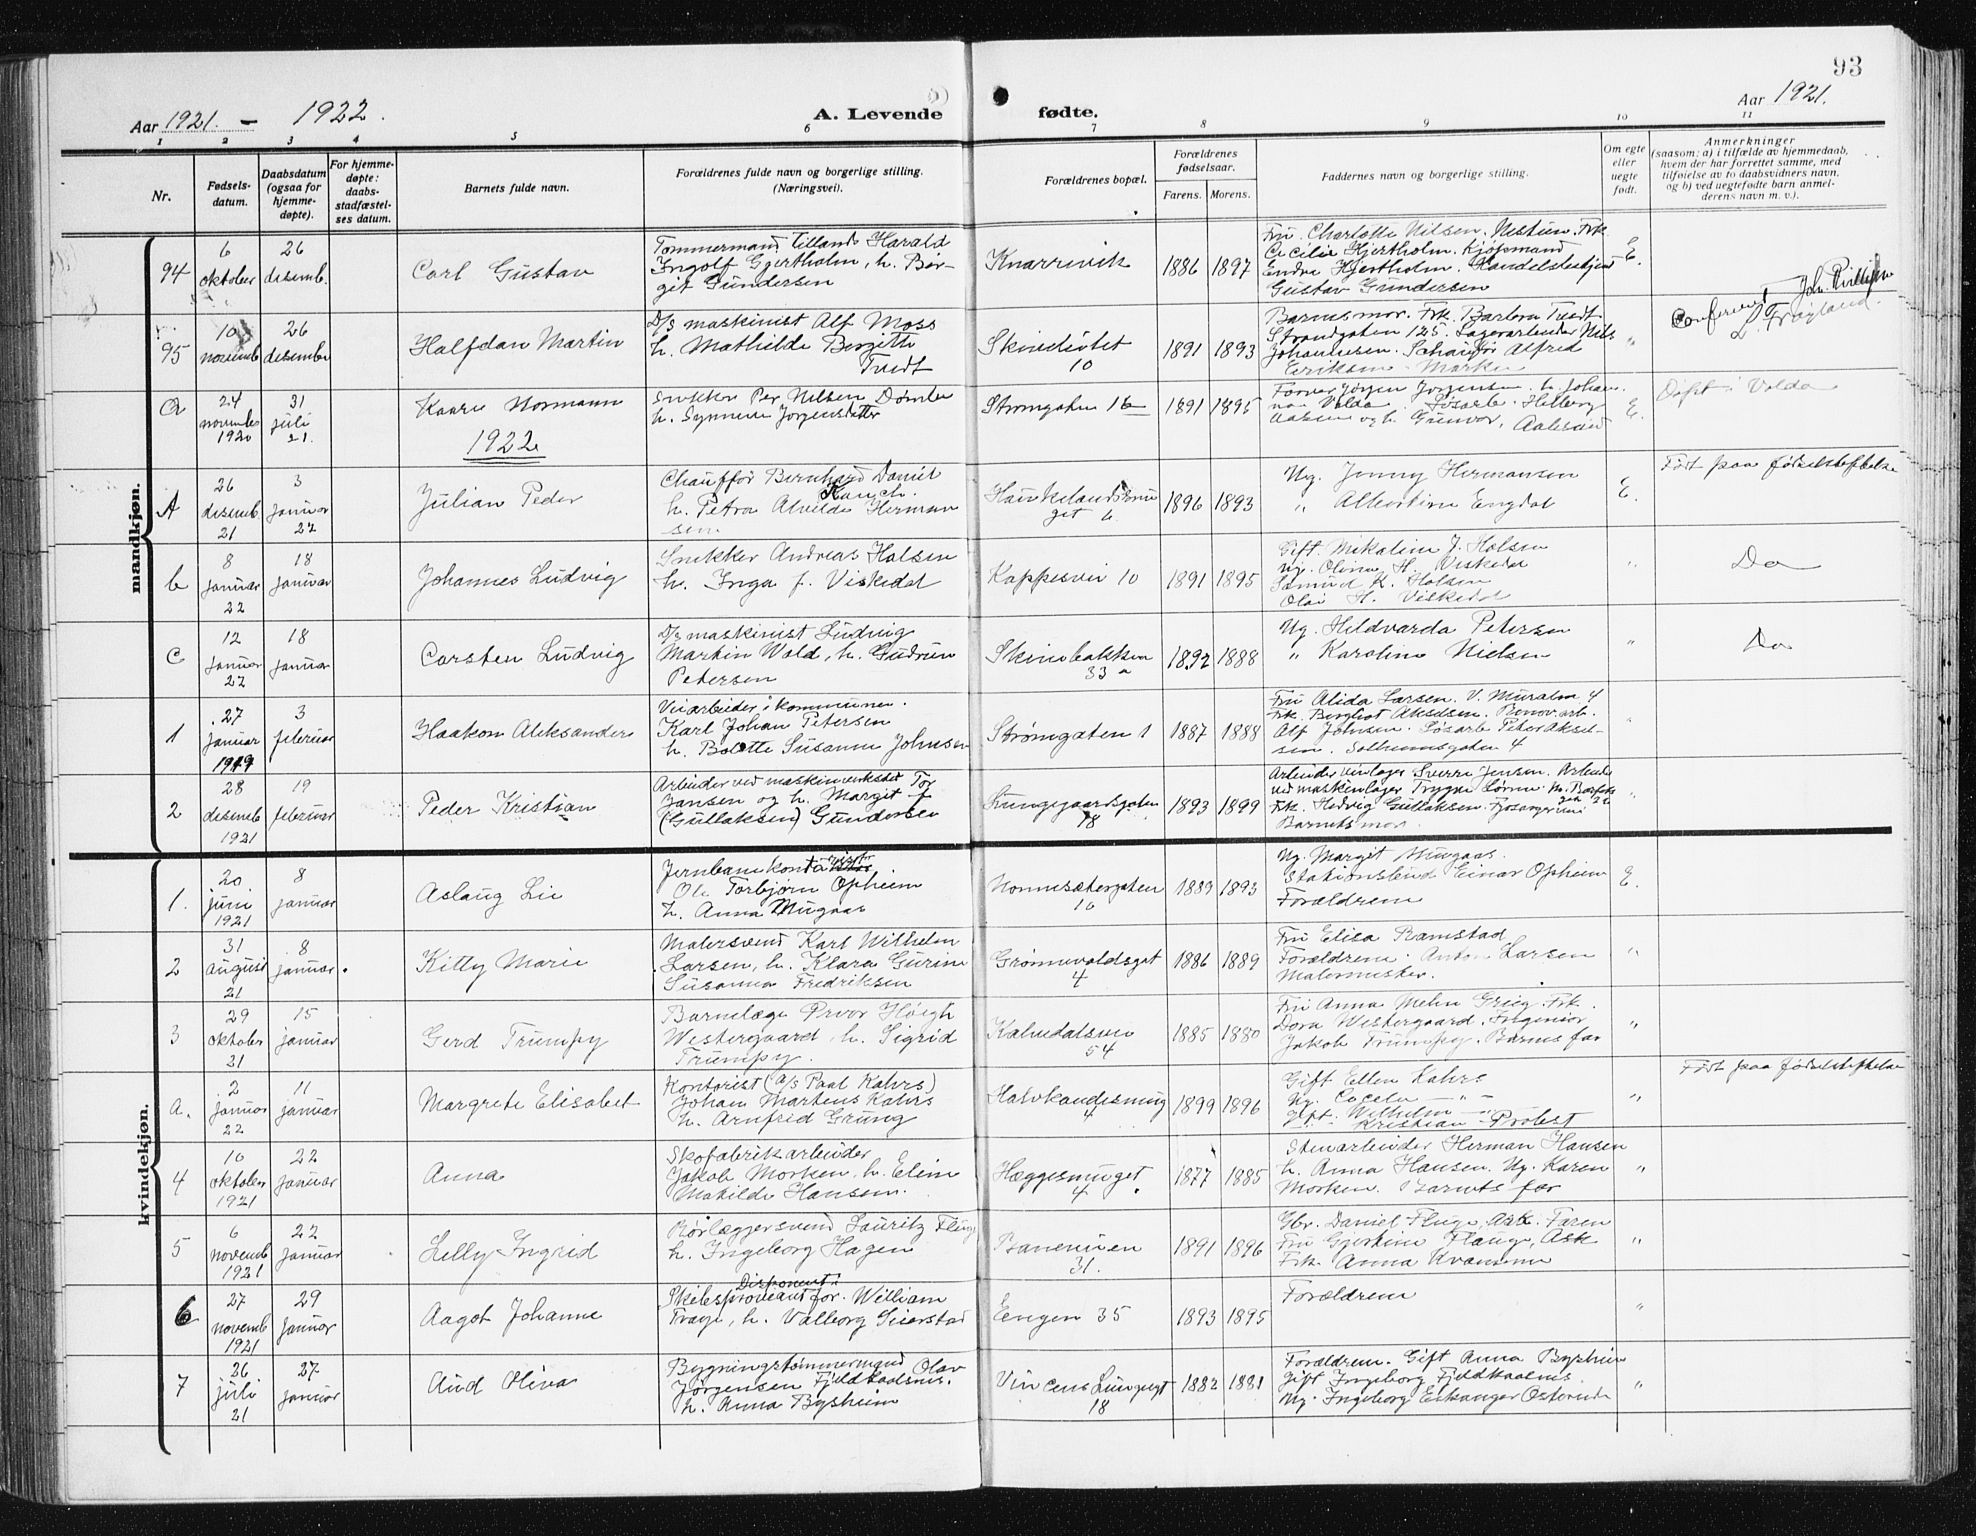 93
Aar 1921. - 1922.
A. Levende fødte.
Aar 1921.
1 2 3 4 5 6 7 8 9 10 11
Nr.
Fødsels-
datum.
Daabsdatum
(ogsaa for
hjemme-
døpte).
For hjemme-
døpte:
daabs-
stadfæstel-
ses datum.
Barnets fulde navn.
Forældrenes fulde navn og borgerlige stilling.
(Næringsvei).
Forældrenes bopæl.
Forældrenes
fødselsaar.
Farens. Morens.
Faddernes navn og borgerlige stilling.
Om egte
eller
uegte
født.
Anmerkninger
(saasom: a) i tilfælde av hjemmedaab,
hvem der har forrettet samme, med
tilføielse av to daabsvidners navn,
og b) ved uegtefødte barn anmel-
derens navn m. v.).
mandkjøn.
94
6
oktober
26
desemb.
Carl Gustav
Tømmermand Harald
Ingolf Gjertholm, h. Bir-
git Gundersen
Knarrevik
1886 1897
Fru Charlotte Nilsen. Nestun. Frk.
Cecilie Hjertholm. Kjøpmand
Endre Hjertholm. Handelsbetjent
Gustav Gundersen
E.
95
10
novemb
26
desember
Halfdan Martin
D/s maskinist Alf Moss
h. Mathilde Bergitte
Tvedt
Skivebotet
10
1891 1893
Barnes mor. Frk. Barbra Tvedt
Strandgaten 125. Lagerarbeider Nils
Johannesen. Schaufør Alfred
Eriksen. Marken
"
a
24
november
1920
31
juli
21.
Kaare Normann
Snekker Per Nilsen Dømbe
h. Synneve Jørgensdatter
Strømgaten 16
1891 1895
Jørgen Jørgensen. h. Johan-
na Volda
og h. Gunvor, Aalesund
E.
Døpt i Volda
1922
A
26
desemb.
21
3
januar
22
Julian Peder
Chauffør Bernhard Daniel
Rauch.
h. Petra Alvilde Herman
sen.
1896 1893
Ug. Jenny Hermansen
" Albertine Engdal
E.
Ført paa fødselstiftelse
b
8
januar
22
18
januar
Johannes Ludvig
Snekker Andreas Halsen
h. Inga f. Viskedal
Kappesvei 10
1891 1895
Gift. Mikaline J. Halsen
Ug. Oline H. Viskedal
Samuel K. Halsen
Olai H. Viskedal
"
Do
c
12
januar
22
18
januar
Carsten Ludvig
D/s maskinist Ludvig
Martin Wold, h. Gudrun
Petersen
Skivebakken
33 a
1892 1888
Ug. Hildvarda Petersen
" Karoline Nielsen
"
Do
1
27
januar
1919
3
februar
Haakon Aleksander
Veiarbeider i kommunen.
Karl Johan Petersen
h. Bolette Susanne Johnsen
Strømgaten 1
1887 1888
Fru Alida Larsen. V. Muralm 4
Frk. Borghot Akselsen. Renov. arb.
Alf Johnsen. Løsarb Peter Aksel-
sen. Solheimsgaten 4
"
2
28
desemb
1921
19
februar
Peder Kristian
Arbeider ved maskinverksted Tor
Jansen og h. Margit f
(Gullaksen) Gundersen
Lungegaardsgaten
18
1893 1899
Arbeider vinlager Sverre Jensen. Arbeider
ved maskinlager Trygve Sørnn
Frk. Hedvig Gullaksen. Fjøsangerveien
Barnets mor.
"
kvindekjøn.
1.
20
juni
1921
8
januar
Aslaug Lie
Jernbanekontorist
Ole Torbjørn Opheim
h. Anna Mugaas
Nonnesætergaten
10
1889 1893
Ug. Margit Mugaas.
Stationsbud Einar Opheim
Forældrene
E.
2
31
august
21
8
januar.
Kitty Marie
Malersvend Karl Wilhelm
Larsen, h. Klara Gurine
Susanna Fredriksen
Grønnevoldsgat
4
1886 1889
Fru Elisa Ramstad
Forældrene. Anton Larsen
Malermester.
"
3
29
oktober
21
15
januar
Gerd Trumpy
Barnelæge Prvor Høigh
Westergaard h. Sigrid
Trumpy.
Kalvedalsvei
54
1885 1880
Fru Anna Mehn Grieg. Frk.
Dora Westergaard. Ingeniør
Jakob Trumpy. Barnes far
"
a.
2
januar
22
11
januar
Margrete Elisabet
Kontorist (A/S Paal Kahrs)
Johan Martens Kahrs
h. Arnfrid Grung
Halvkandesmug
4
1899 1896
Gift Ellen Kahrs
Ug. Cecelie - " -
Gpt. Wilhelm - " -
Kristian Probest
"
Ført paa fødselstiftelse
4
10
oktober
1921
22
januar
Anna
Skofabrikarbeider
Jakob Morken h. Eline
Matilde Hansen.
Hæggesmuget
4
1877 1885
Stenarbeider Herman Hansen
h. Anna Hansen. Ug. Karen
Morken. Barnets far
"
5
6
novemb
1921
22
januar
Lelly Ingrid
Rørlæggersvend Lauritz Fluge
h. Ingeborg Hagen
Baneveien
31.
1891 1896
Gbr. Daniel Fluge, Ask. Faren
Fru Gjertine Flauge, Ask
Frk. Anna Kvamme
"
6
27
novemb
1921
29
januar
Aagot Johanne
Disponent
Skibsproviantfor. William
Traye, h. Valborg Gierstad
Engen 35
1893 1895
Forældrene
"
7
26
juli
21
27
januar
Aud Oliva
Bygningstømmermand Olav
Jørgensen Fjeldkaasnes.
h. Anna Bysheim
Vincens Lungegt
18
1882 1881
Forældrene. Gift Anna Bysheim
Gift Ingeborg Fjeldkaasnes.
Ug. Ingeborg Eikanger Osterside
"